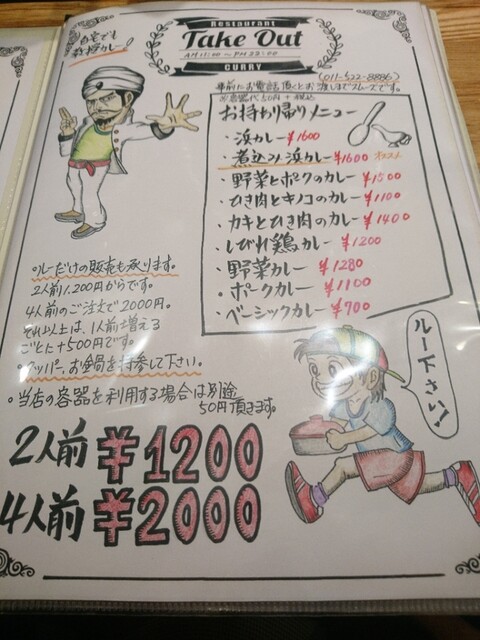 Restaurant
Take Out
AM 11:00 ~ PM 22:00
CURRY
自宅でも
教授カレー!
(011-522-8886)
事前にお電話頂くとお渡しまでスムーズです。
※容器代50円+税込
お持ち帰りメニュー
・浜カレー ¥1600
・煮込み浜カレー ¥1600 オススメ
・野菜とポークのカレー ¥1500
・ひき肉とキノコのカレー ¥1100
・カキとひき肉のカレー ¥1400
・しびれ鶏カレー ¥1200
・野菜カレー ¥1280
・ポークカレー ¥1100
・ベーシックカレー ¥700
・ルーだけの販売も承ります。
2人前1,200円からです。
4人前のご注文で2000円。
それ以上は、1人前増える
ごとに+500円です。
・タッパー、お鍋を持参して下さい。
・当店の容器を利用する場合は別途
50円頂きます。
ルー下さい!
2人前 ¥1200
4人前 ¥2000